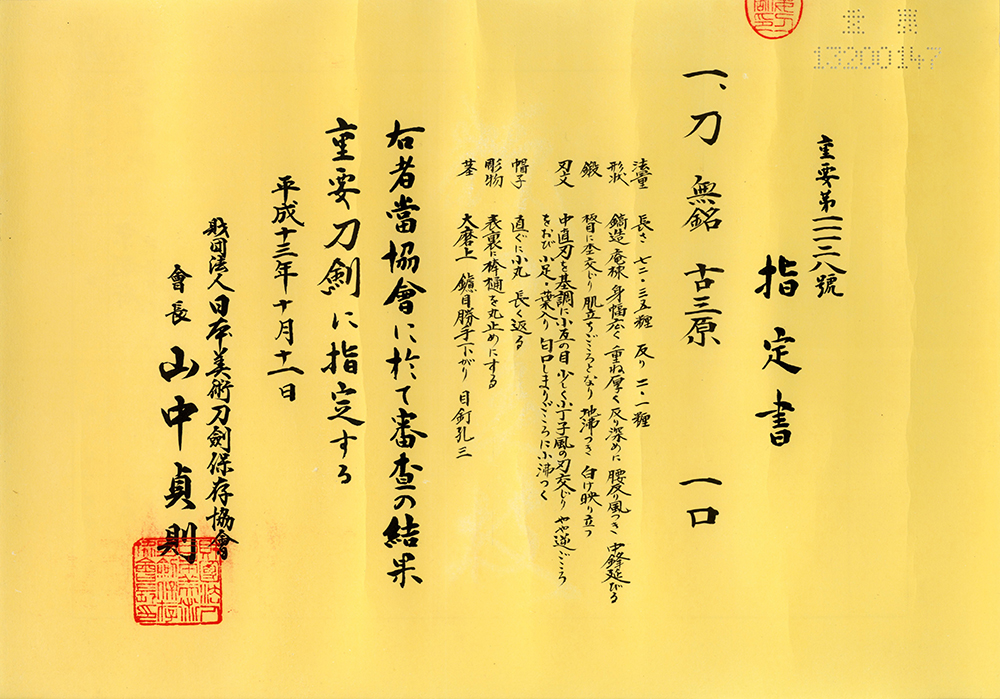 重要
13200147
重要第一一一二八號
指定書
一、刀 無銘 古三原 一口
法量 長さ 七二・三五糎 反り 二・一糎
形状 鎬造 庵棟 身幅広く 重ね厚く 反り深めに 腰反り風つき 中鋒延びる
鍛 板目に杢交じり 肌立ちごころとなり 地沸つき 白け映り立つ
刃文 中直刃を基調に小互の目 少しく小丁子風の刃交じり やや逆ごころ
をおび 小足・葉入り 匂口しまりごころに小沸つく
帽子 直ぐに小丸 長く返る
彫物 表裏に棒樋を丸止めにする
茎 大磨上 鑢目勝手下がり 目釘孔三
右者當協會に於て審査の結果
重要刀劍に指定する
平成十三年十月十一日
財団法人日本美術刀劍保存協會
會長 山中貞則